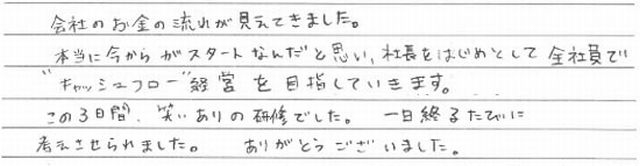 会社のお金の流れが見えてきました。
本当に今からがスタートなんだと思い、社長をはじめとして全社員で
"キャッシュフロー"経営を目指していきます。
この3日間、笑いありの研修でした。 一日終るたびに
考えさせられました。 ありがとうございました。